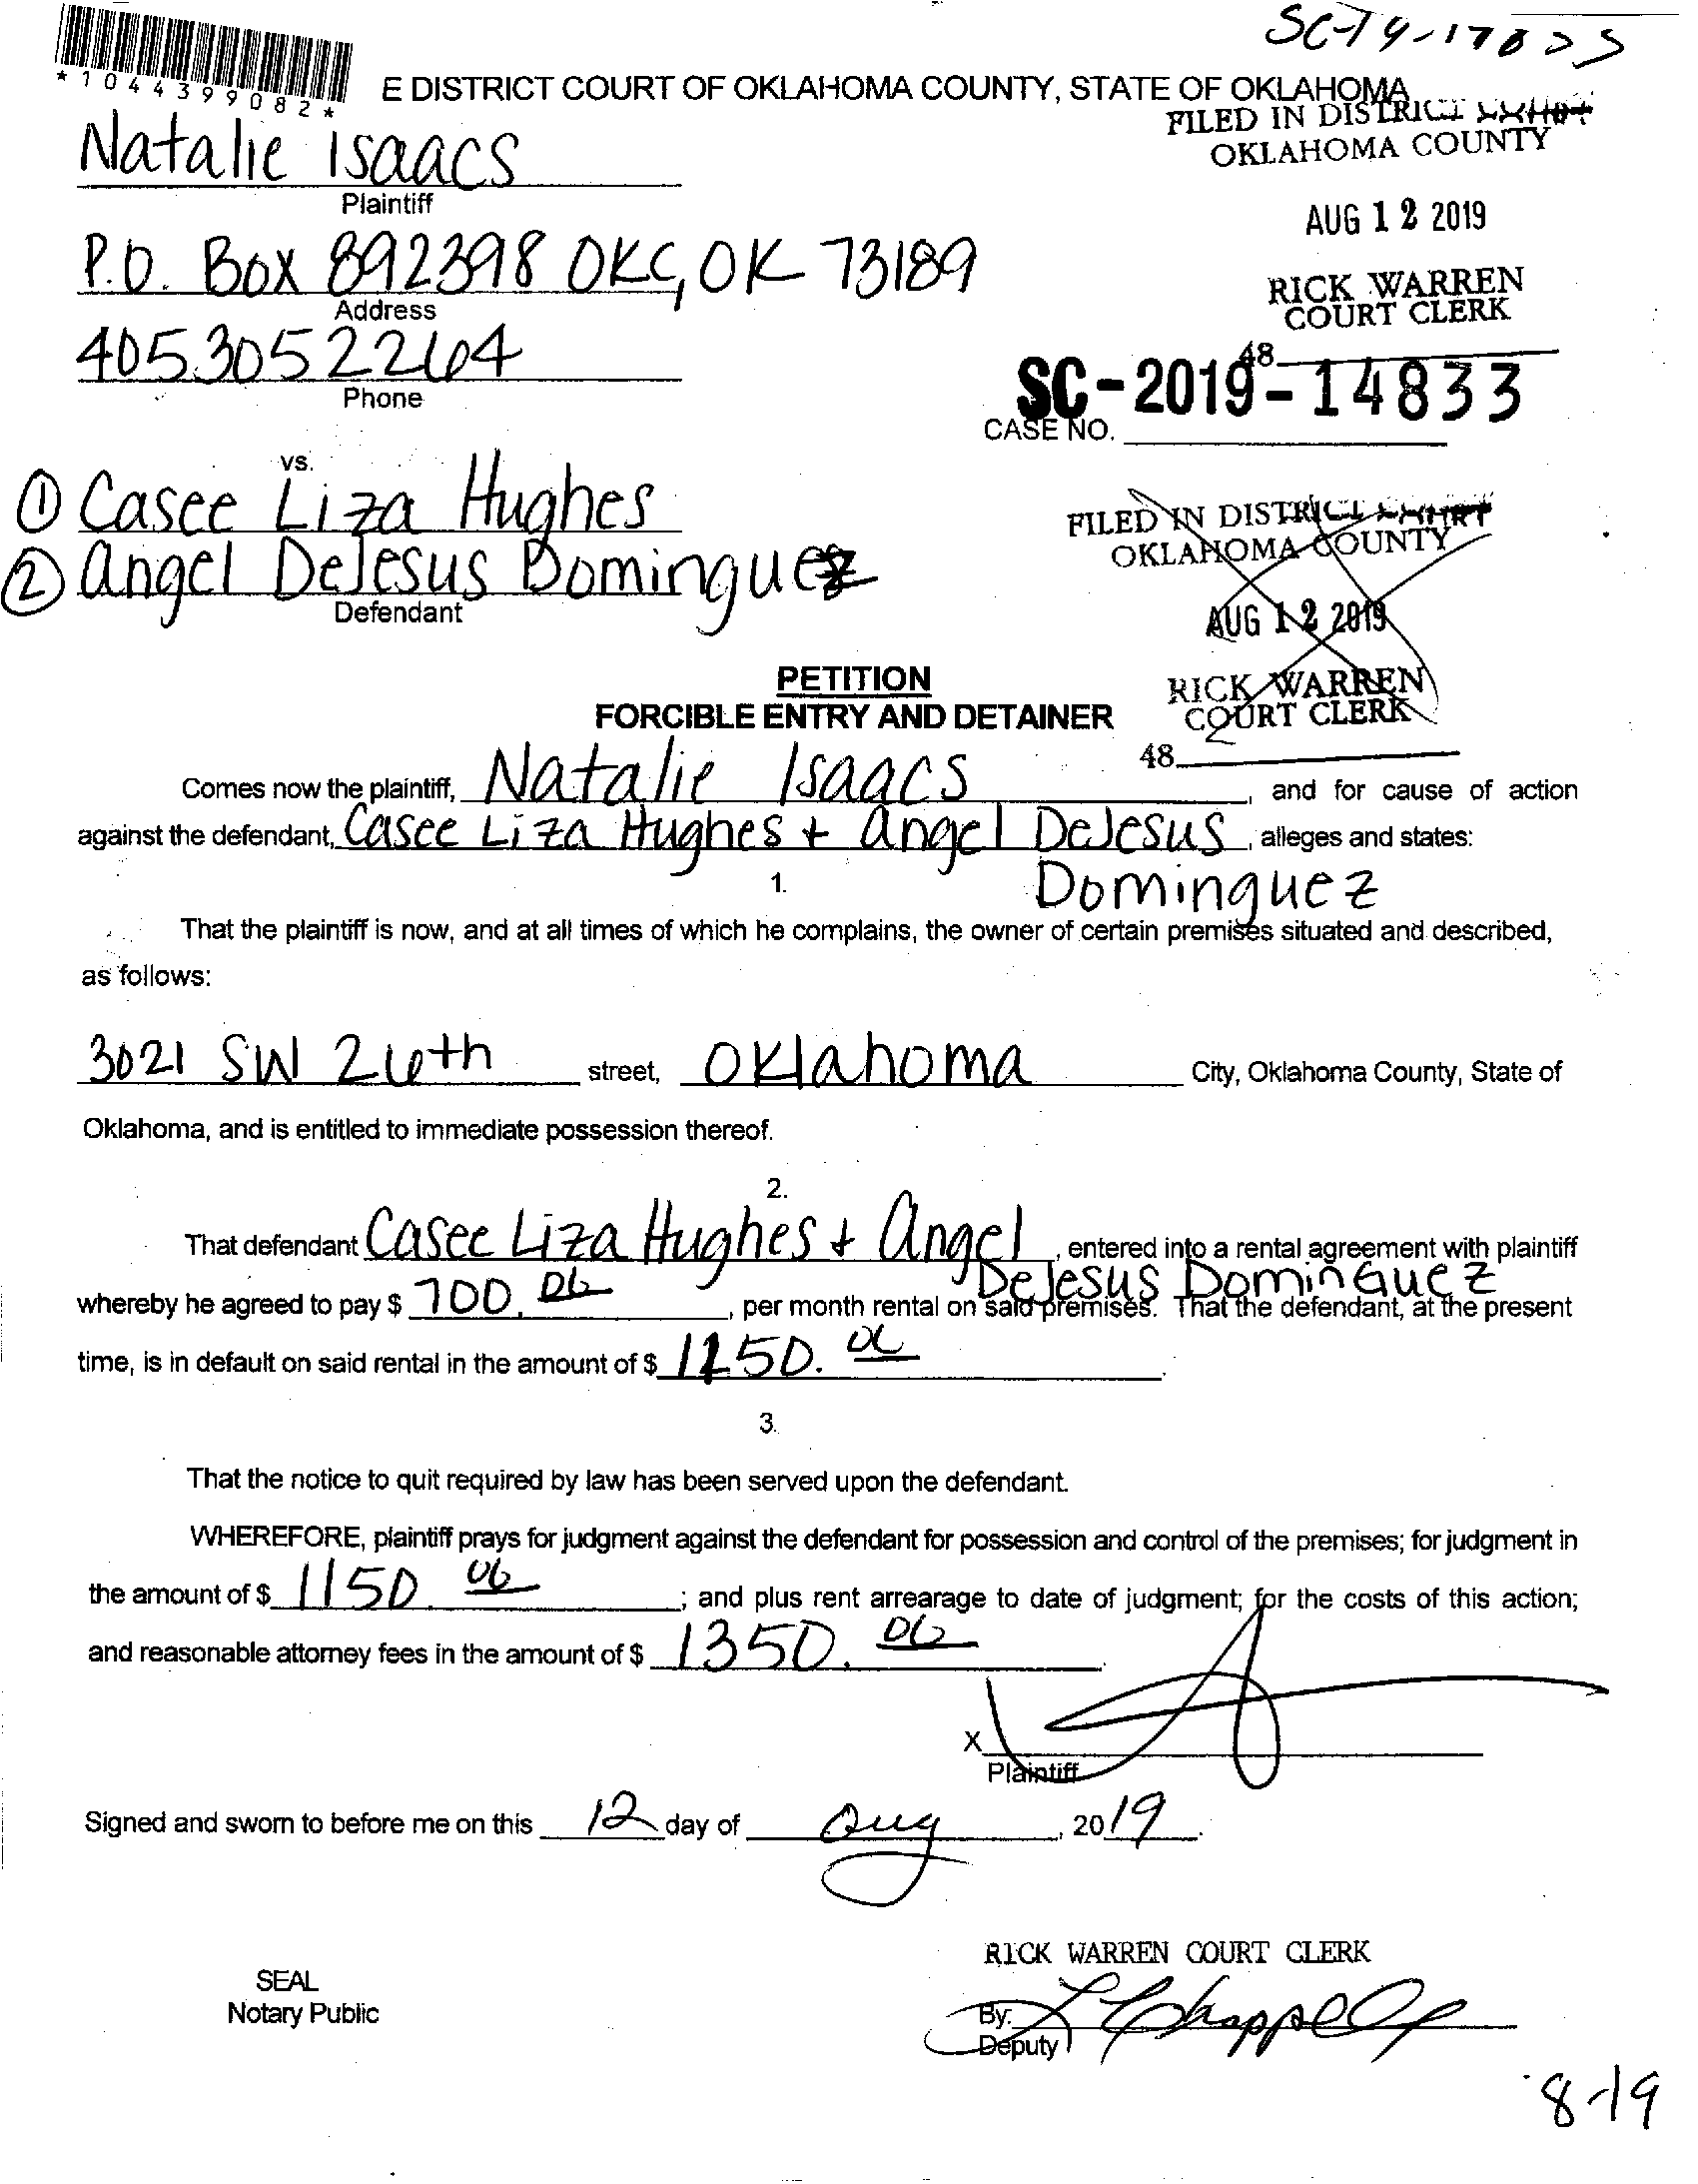 *1044399082*
E DISTRICT COURT OF OKLAHOMA COUNTY, STATE OF OKLAHOMA
FILED IN DISTRICT COURT
OKLAHOMA COUNTY
Natalie Isaacs
Plaintiff
AUG 12 2019
P.O. Box 892398 OKC, OK 73189
Address
RICK WARREN
COURT CLERK
4053052264
Phone
48
SC-2019-14833
CASE NO.
vs.
① Casee Liza Hughes
② Angel DeJesus Dominguez
Defendant
FILED IN DISTRICT COURT
OKLAHOMA COUNTY
AUG 12 2019
RICK WARREN
COURT CLERK
48
PETITION
FORCIBLE ENTRY AND DETAINER
Comes now the plaintiff, Natalie Isaacs, and for cause of action
against the defendant, Casee Liza Hughes + Angel DeJesus, alleges and states:
Dominguez
1.
That the plaintiff is now, and at all times of which he complains, the owner of certain premises situated and described,
as follows:
3021 SW 26th street, Oklahoma City, Oklahoma County, State of
Oklahoma, and is entitled to immediate possession thereof.
2.
That defendant Casee Liza Hughes + Angel, entered into a rental agreement with plaintiff
DeJesus Dominguez
whereby he agreed to pay $ 700.00, per month rental on said premises. That the defendant, at the present
time, is in default on said rental in the amount of $ 1150.00.
3.
That the notice to quit required by law has been served upon the defendant.
WHEREFORE, plaintiff prays for judgment against the defendant for possession and control of the premises; for judgment in
the amount of $ 1150.00; and plus rent arrearage to date of judgment; for the costs of this action;
and reasonable attorney fees in the amount of $ 1350.00.
X
Plaintiff
Signed and sworn to before me on this 12 day of Aug, 2019.
RICK WARREN COURT CLERK
SEAL
Notary Public
By: L Chappell
Deputy
8-19